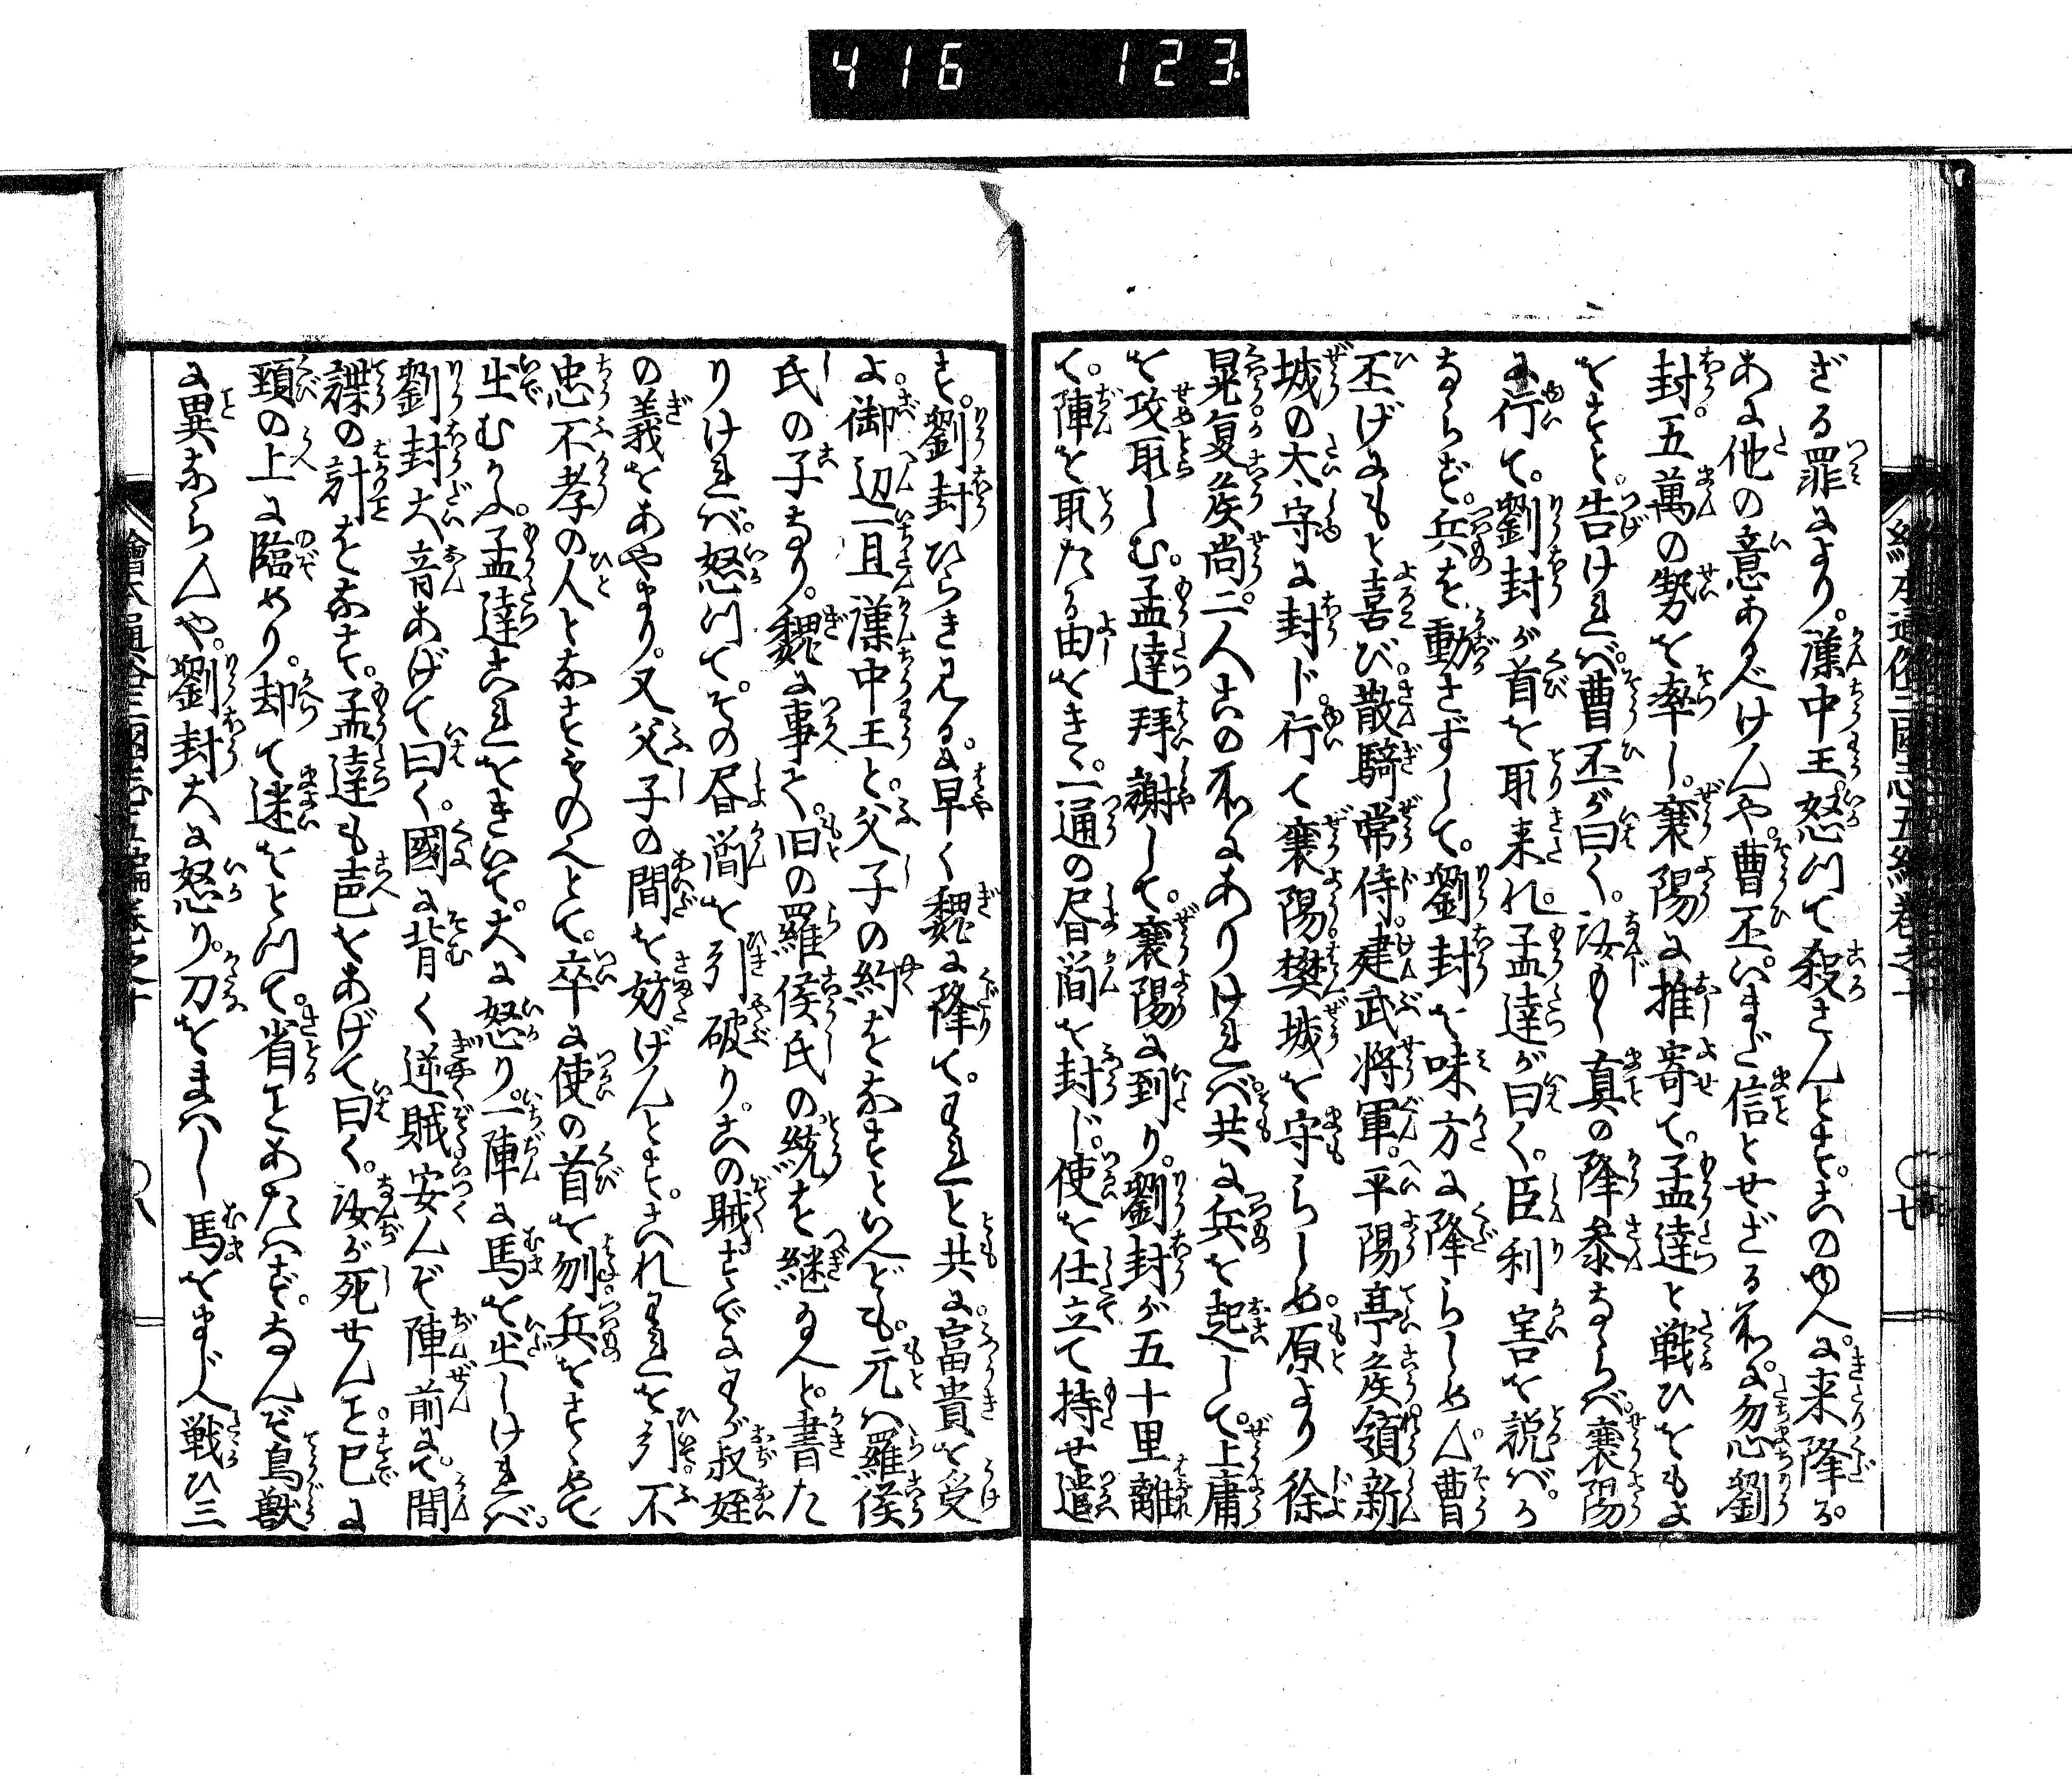 416 123
繪本通俗三國志五編巻之十
ざる罪により。漢中王怒つて殺さんとす。このゆへに来降る。
あに他の意あるべけんや。曹丕いまだ信とせざる処に。忽劉
封五萬の勢を率し。襄陽に推寄て。孟達と戦ひをもよ
をすと。告けれバ。曹丕が曰く。汝もし真の降参ならバ。襄陽
に行て。劉封が首を取来れ。孟達が曰く。臣利害を説バ。か
ならず。兵を動さずして。劉封を味方に降らしめん。曹
丕げにもと喜び。散騎常侍。建武将軍。平陽亭矦。領新
城の太守に封ド。行て襄陽樊城を守らしめ。原より徐
晃夏矦尚。二人此の処にありけれバ。共に兵を起して。上庸
を攻取しむ。孟達拜謝して。襄陽に到り。劉封が五十里離
て。陣を取たる由をきく。一通の昏簡を封じ。使を仕立て持せ遣
す。劉封ひらき見るに。早く魏に降て。われと共に。富貴を受
よ。御辺一旦漢中王と。父子の約をなすといへども。元ハ羅侯
氏の子なり。魏に事て。旧の羅侯氏の統を継玉へと。書た
りけれバ。怒つて。その昏簡を引破り。此の賊すでにわが叔姪
の義をあやまり。又父子の間を妨げんとす。これわれを引。不
忠不孝の人となすものなりとて。卒に使の首を刎。兵をすゝめて
出むかふ。孟達これをきいて。大に怒り。一陣に馬を出しけれバ。
劉封大音あげて曰く。國に背く逆賊安んぞ陣前にて。間
諜の計をなす。孟達も声をあげて曰く。汝が死せんこと。已に
頸の上に臨めり。却て迷をとつて。省ことあたハず。なんぞ鳥獣
に異ならんや。劉封大に怒り。刀をまハし馬をまじへ戦ひ三
繪本通俗三國志五編巻之十
〇八